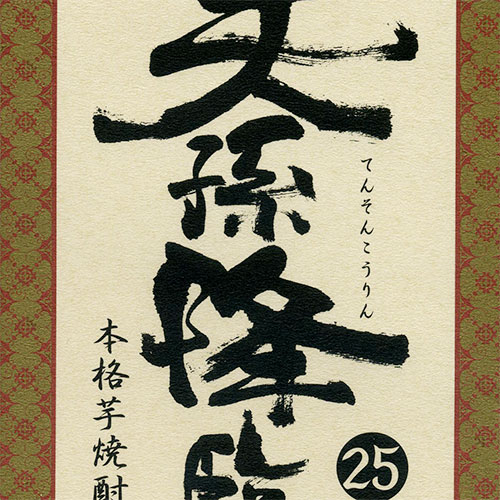 天孫降臨
てんそんこうりん
本格芋焼酎
25